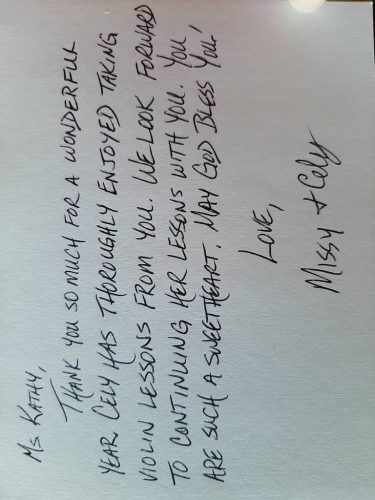 Ms. KATHY,
THANK YOU SO MUCH FOR A WONDERFUL
YEAR CELY HAS THOROUGHLY ENJOYED TAKING
VIOLIN LESSONS FROM YOU. WE LOOK FORWARD
TO CONTINUING HER LESSONS WITH YOU. YOU
ARE SUCH A SWEETHEART. MAY GOD BLESS YOU,
LOVE,
MISSY + Cely